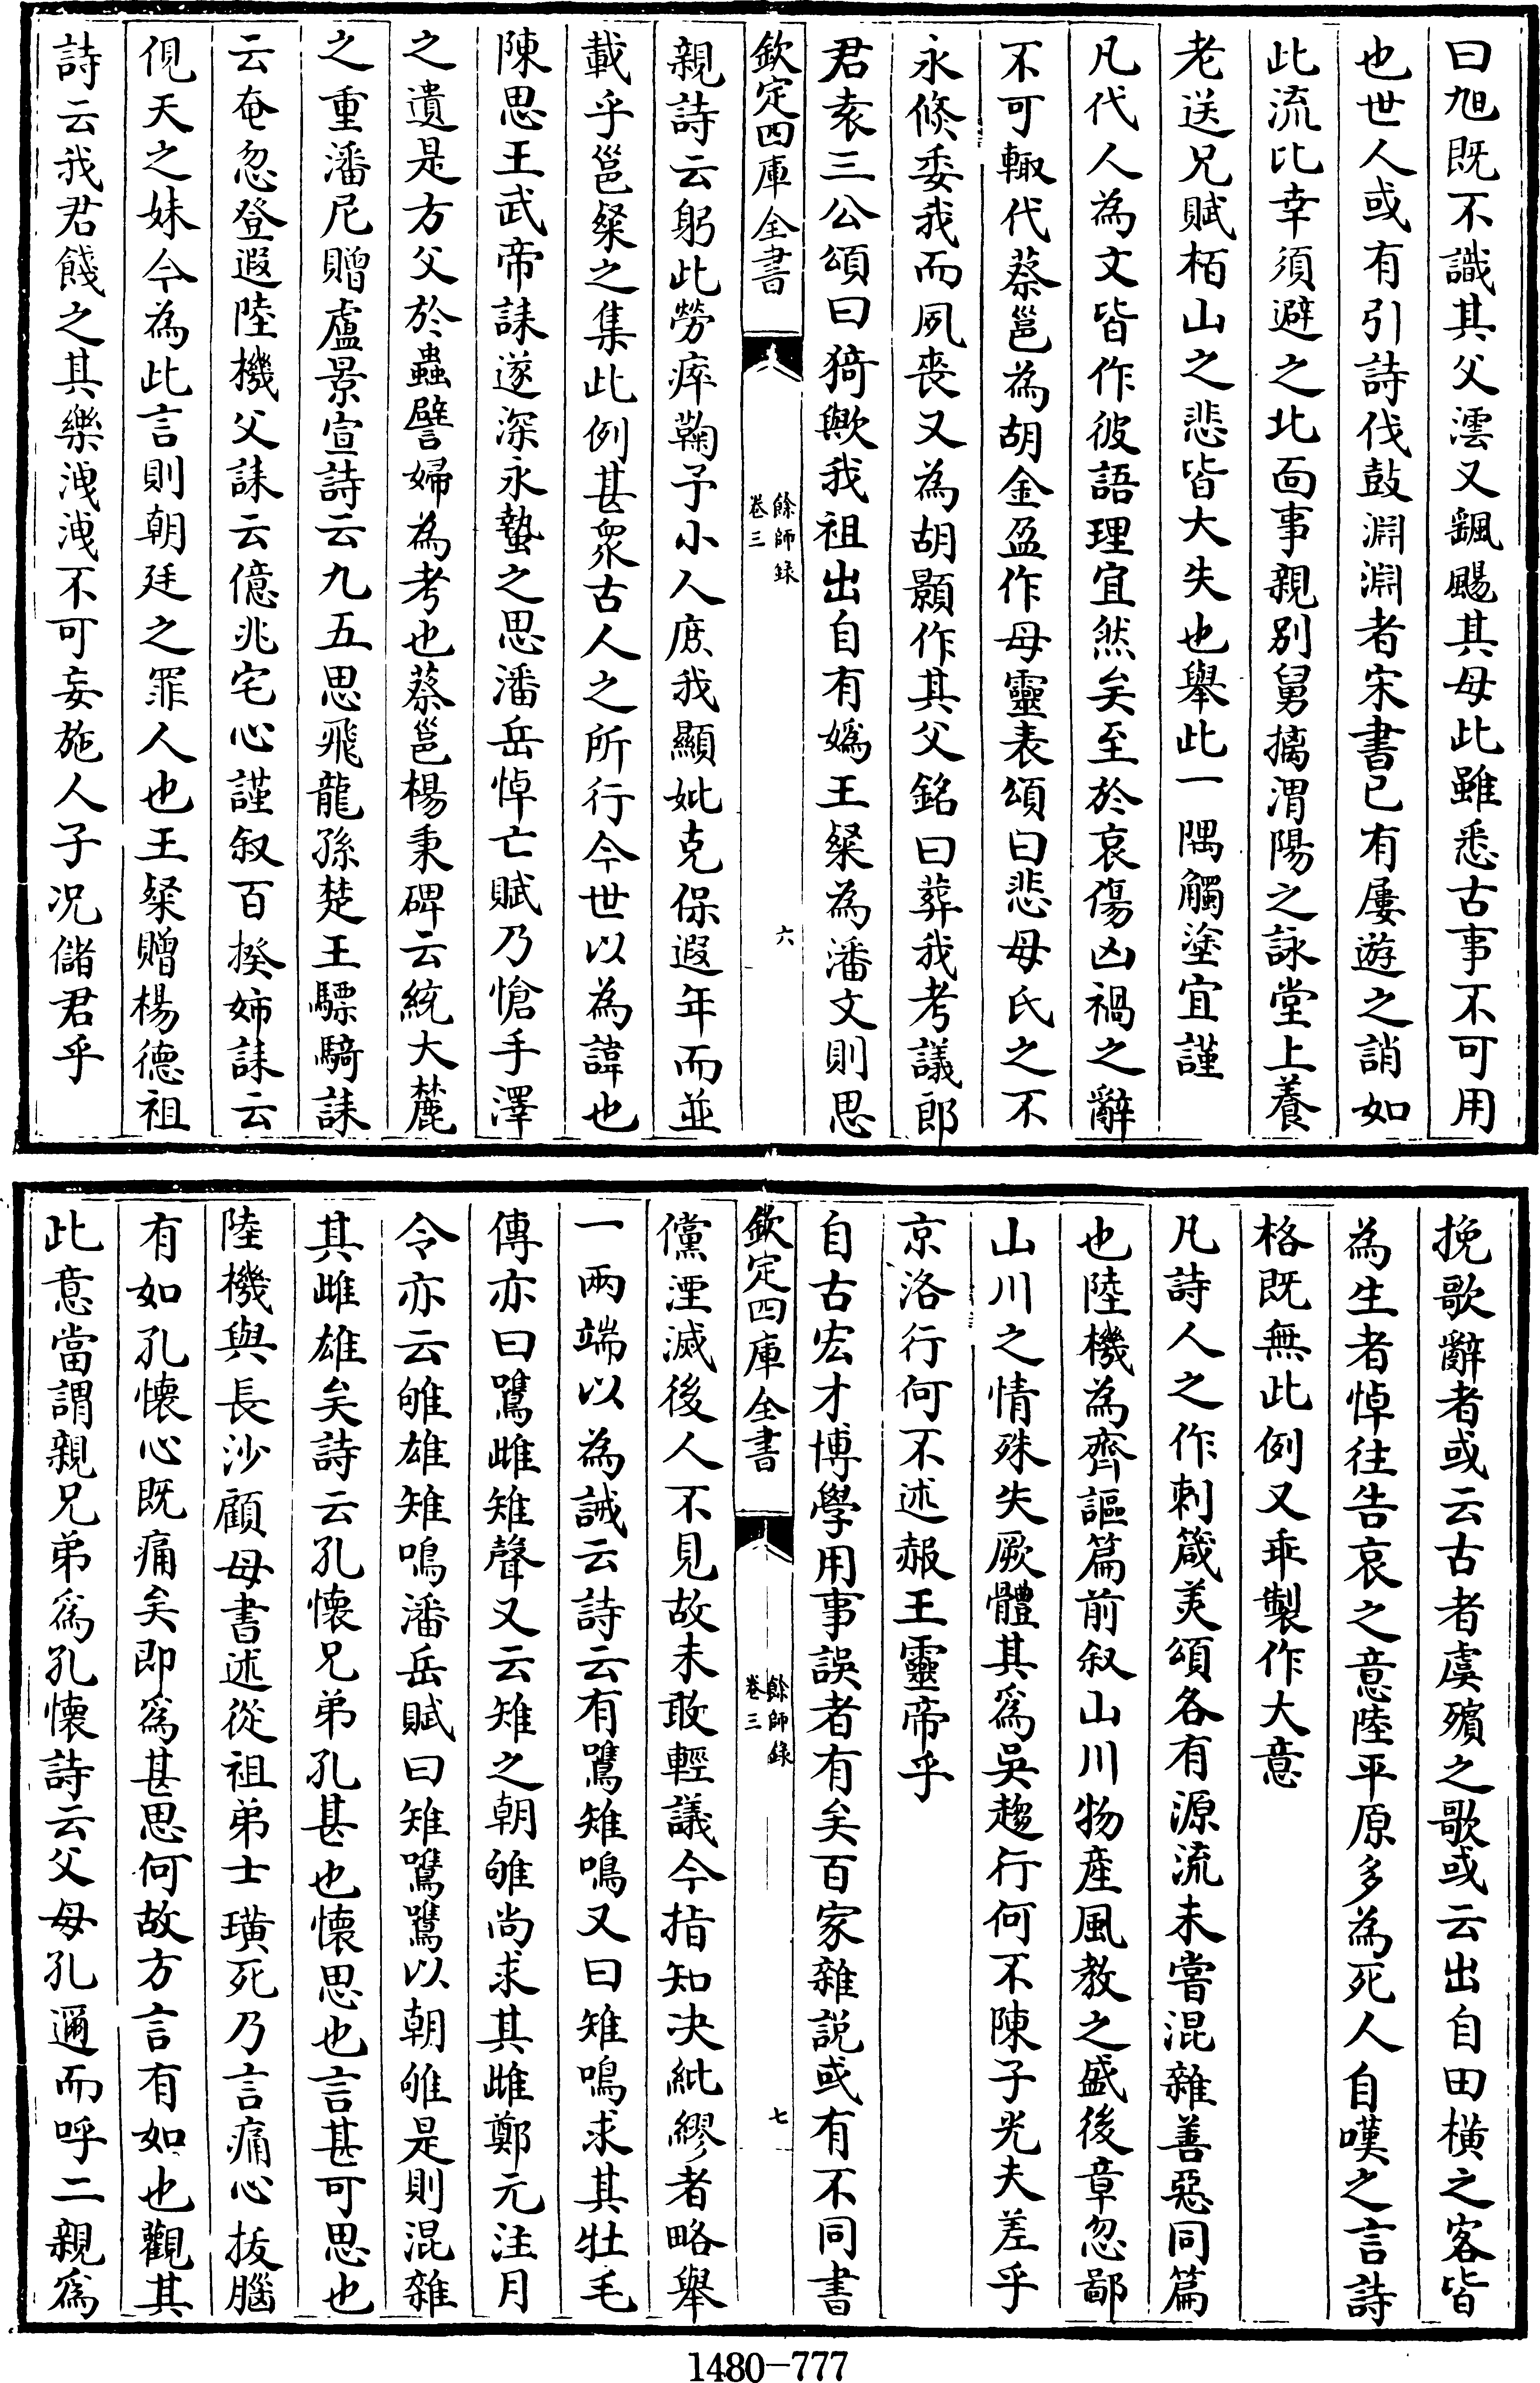 曰旭既不識其父澐又飄颺其母此雖悉古事不可用
也世人或有引詩伐鼓淵淵者宋書已有屢遊之誚如
此流比幸須避之北面事親別舅摛渭陽之詠堂上養
老送兄賦栢山之悲皆大失也舉此一隅觸塗宜謹
凡代人為文皆作彼語理宜然矣至於哀傷凶禍之辭
不可輙代蔡邕為胡金盈作母靈表頌曰悲母氏之不
永倏委我而夙喪又為胡顥作其父銘曰葬我考議郎
君袁三公頌曰猗歟我祖出自有媯王粲為潘文則思
欽定四庫全書
餘師録
卷三
六
親詩云躬此勞瘁鞠予小人庶我顯妣克保遐年而並
載乎邕粲之集此例甚衆古人之所行今世以為諱也
陳思王武帝誄遂深永蟄之思潘岳悼亡賦乃愴手澤
之遺是方父於蟲譬婦為考也蔡邕楊秉碑云統大麓
之重潘尼贈盧景宣詩云九五思飛龍孫楚王驃騎誄
云奄忽登遐陸機父誄云億兆宅心謹叙百揆姊誄云
俔天之妹今為此言則朝廷之罪人也王粲贈楊德祖
詩云我君餞之其樂洩洩不可妄施人子况儲君乎
挽歌辭者或云古者虞殯之歌或云出自田橫之客皆
為生者悼往告哀之意陸平原多為死人自嘆之言詩
格既無此例又乖製作大意
凡詩人之作刺箴美頌各有源流未嘗混雜善惡同篇
也陸機為齊謳篇前叙山川物產風教之盛後章忽鄙
山川之情殊失厥體其爲吳趨行何不陳子光夫差乎
京洛行何不述赧王靈帝乎
自古宏才博學用事誤者有矣百家雜説或有不同書
欽定四庫全書
餘師録
卷三
七
儻湮滅後人不見故未敢輕議今指知决紕繆者略舉
一兩端以為誡云詩云有鷕雉鳴又曰雉鳴求其牡毛
傳亦曰鷕雌雉聲又云雉之朝雊尚求其雌鄭元注月
令亦云雊雄雉鳴潘岳賦曰雉鷕鷕以朝雊是則混雜
其雌雄矣詩云孔懷兄弟孔甚也懷思也言甚可思也
陸機與長沙顧母書述從祖弟士璜死乃言痛心拔腦
有如孔懷心既痛矣即爲甚思何故方言有如也觀其
此意當謂親兄弟爲孔懷詩云父母孔邇而呼二親爲
1480-777